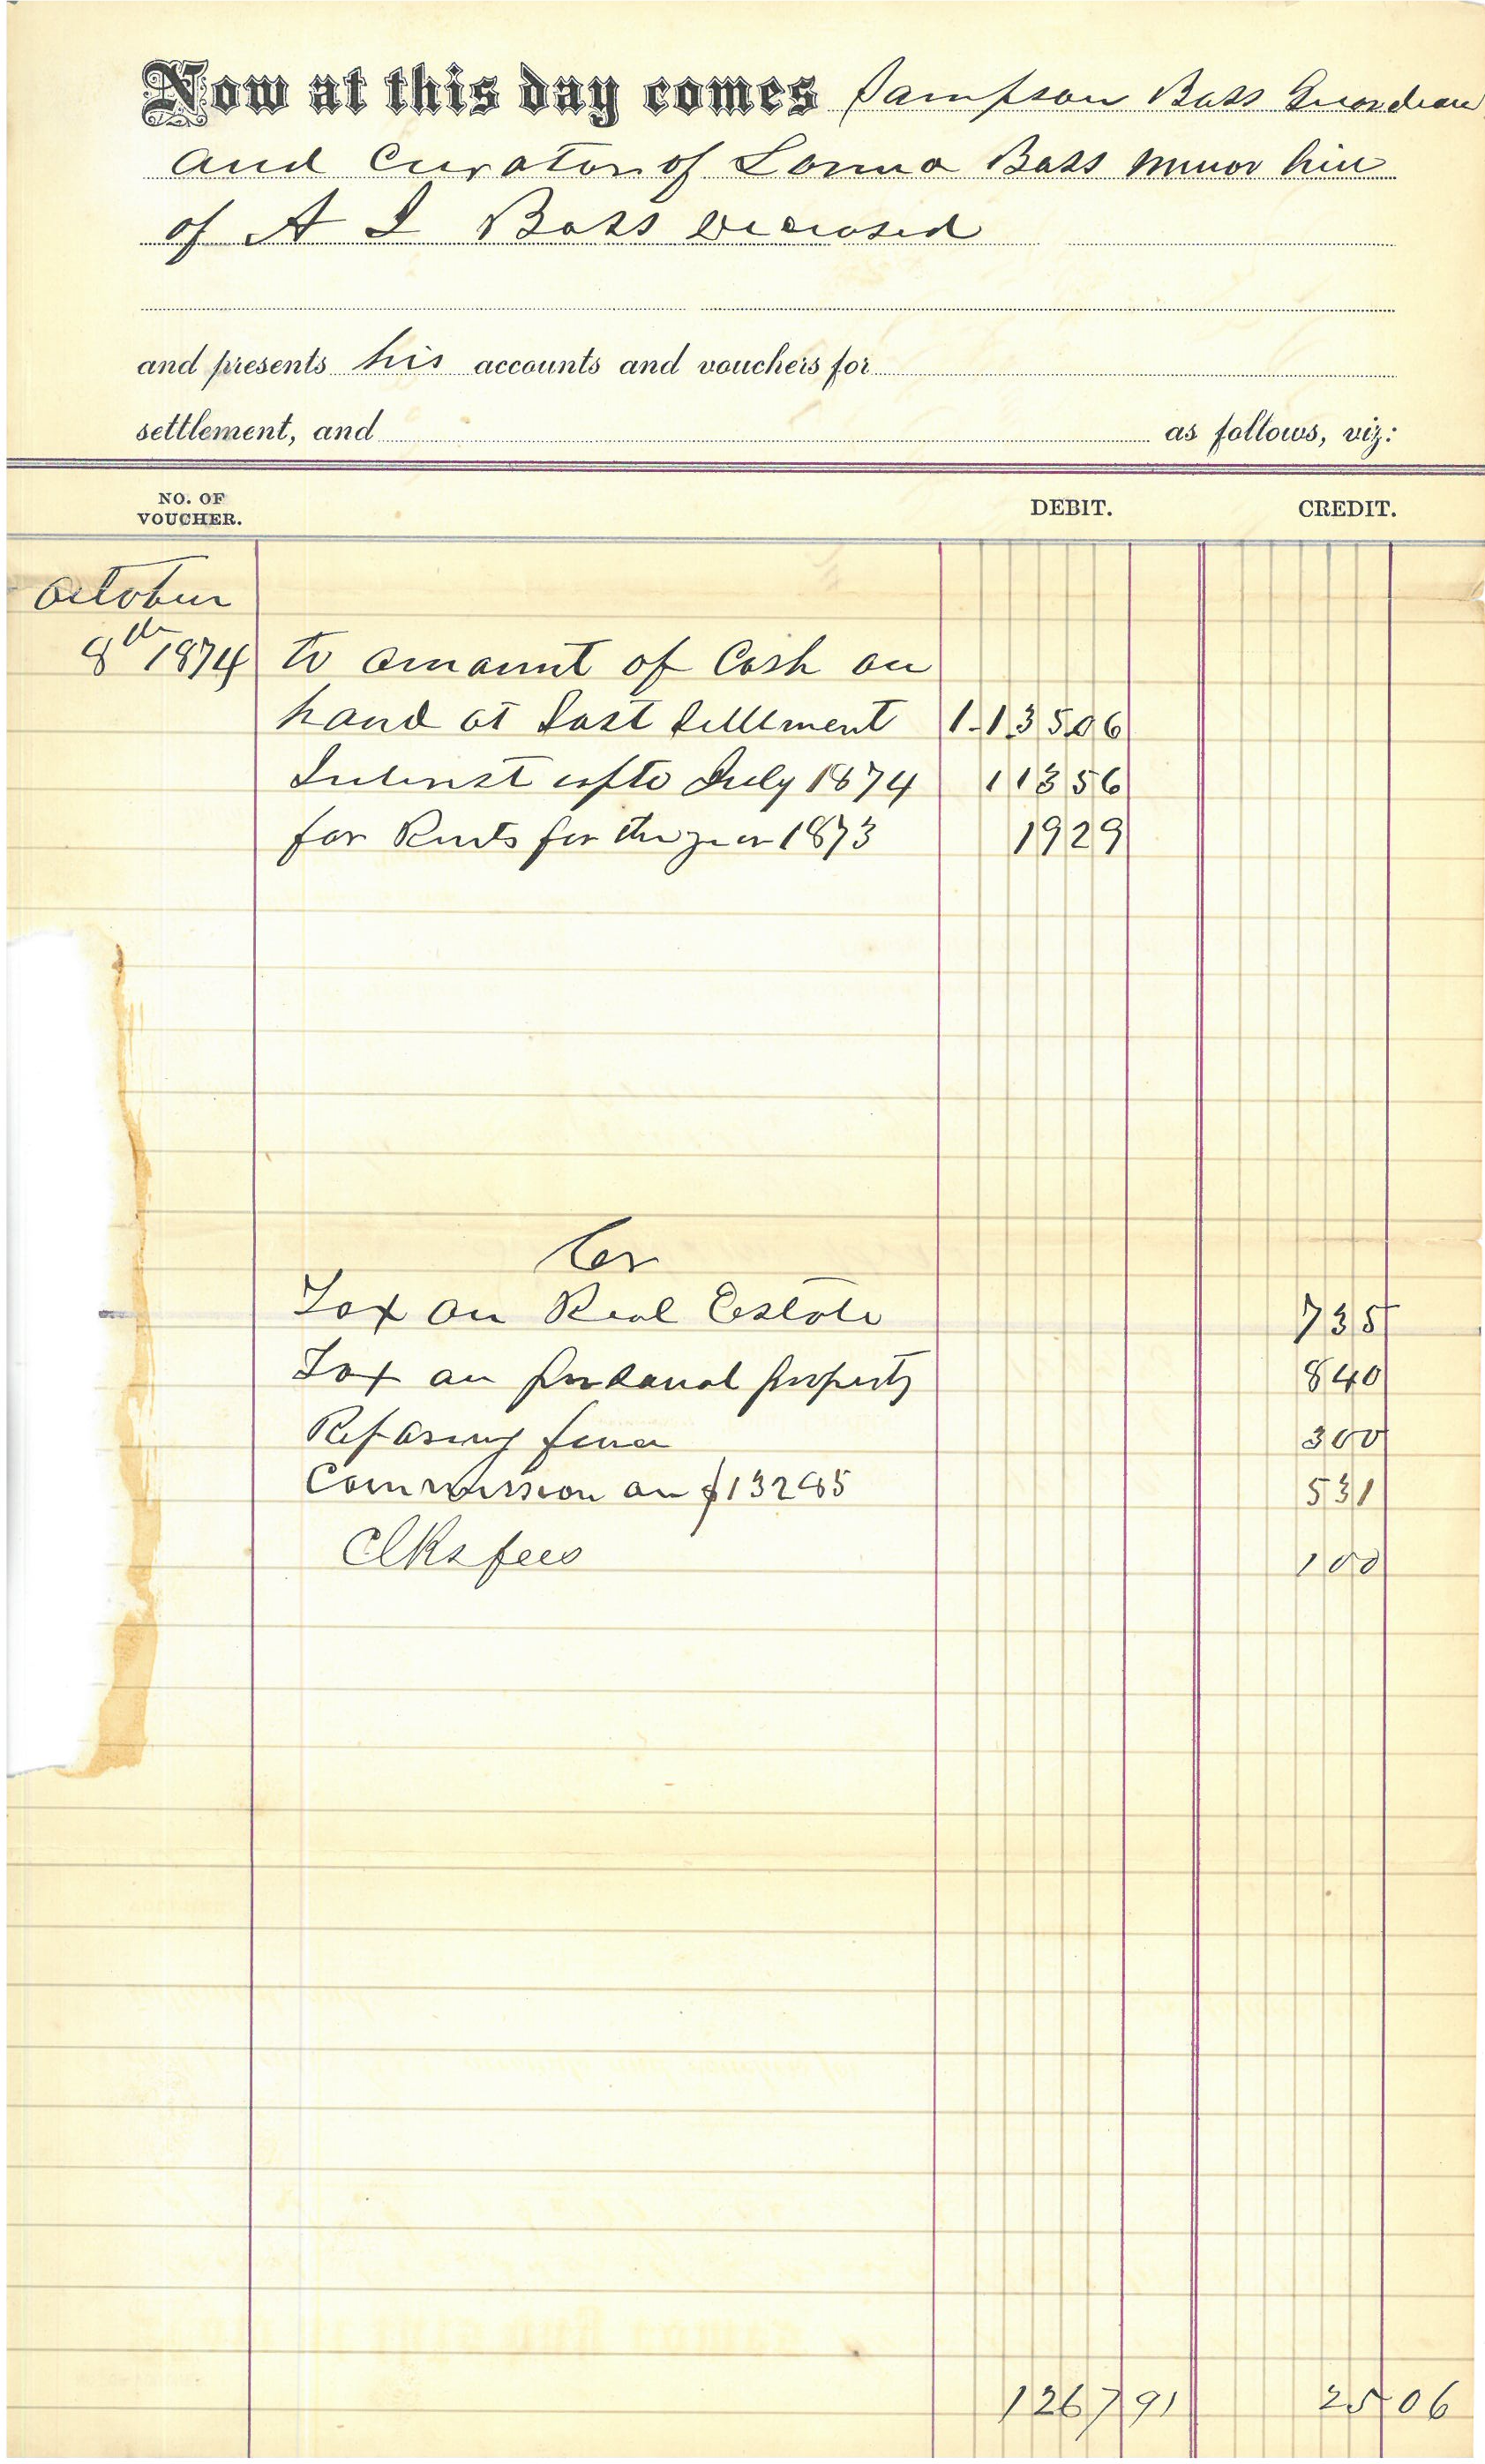 Now at this day comes Sampson Bass Guardian
and Curator of Lonna Bass minor hier
of A I Bass deceased
and presents his accounts and vouchers for
settlement, and as follows, viz:
NO. OF VOUCHER. DEBIT. CREDIT.
October
8th 1874 to amount of Cash on
hand at Last Settlment 1-13506
Interest upto July 1874 11356
for Rents for the year 1873 1929
Cr
Tax on Real Estate 735
Tax on personal property 840
Reparing fence 300
Commission on $13285 531
Clks fees 100
1267 91 25 06